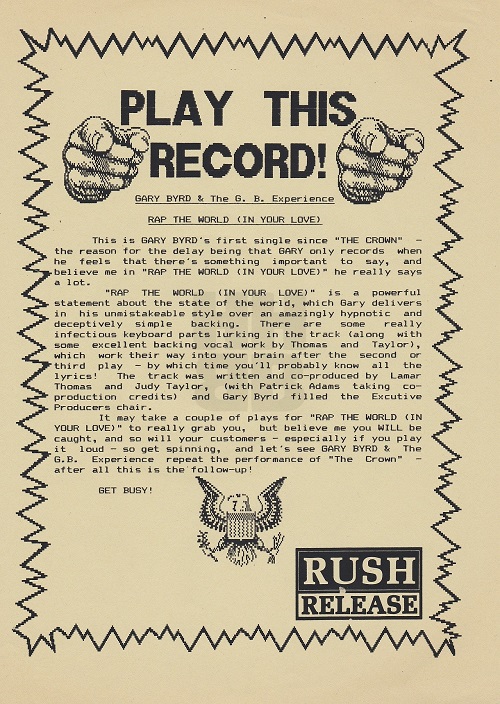 PLAY THIS
RECORD!
GARY BYRD & The G. B. Experience
RAP THE WORLD (IN YOUR LOVE)
This is GARY BYRD's first single since "THE CROWN" -
the reason for the delay being that GARY only records when
he feels that there's something important to say, and
believe me in "RAP THE WORLD (IN YOUR LOVE)" he really says
a lot.
"RAP THE WORLD (IN YOUR LOVE)" is a powerful
statement about the state of the world, which Gary delivers
in his unmistakeable style over an amazingly hypnotic and
deceptively simple backing. There are some really
infectious keyboard parts lurking in the track (along with
some excellent backing vocal work by Thomas and Taylor),
which work their way into your brain after the second or
third play - by which time you'll probably know all the
lyrics! The track was written and co-produced by Lamar
Thomas and Judy Taylor, (with Patrick Adams taking co-
production credits) and Gary Byrd filled the Excutive
Producers chair.
It may take a couple of plays for "RAP THE WORLD (IN
YOUR LOVE)" to really grab you, but believe me you WILL be
caught, and so will your customers - especially if you play
it loud - so get spinning, and let's see GARY BYRD & The
G.B. Experience repeat the performance of "The Crown" -
after all this is the follow-up!
GET BUSY!
RUSH
RELEASE